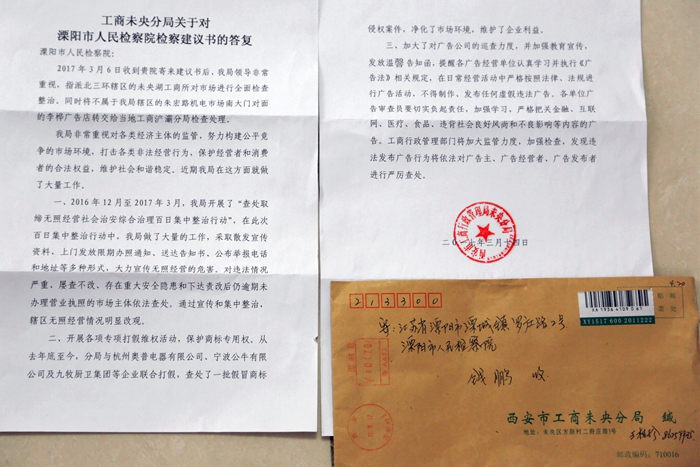 工商未央分局关于对
溧阳市人民检察院检察建议书的答复
溧阳市人民检察院:
2017年3月6日收到贵院寄来建议书后,我局领导非常
重视,指派北三环辖区的未央湖工商所对市场进行全面检查
整治。同时将不属于我局辖区的朱宏路机电市场南大门对面
的李桦广告店转交给当地工商浐灞分局检查处理。
我局非常重视对各类经济主体的监管,努力构建公平竞
争的市场环境,打击各类非法经营行为,保护经营者和消费
者的合法权益,维护社会和谐稳定。近期我局在这方面就做
了大量工作。
一、2016年12月至2017年3月,我局开展了“查处取
缔无照经营社会治安综合治理百日集中整治行动”,在此次
百日集中整治行动中,我局做了大量的工作,采取散发宣传
资料,上门发放限期办照通知,送达告知书、公布举报电话
和地址等多种形式,大力宣传无照经营的危害。对违法情况
严重、屡查不改、存在重大安全隐患和下达责改后仍逾期未
办理营业执照的市场主体依法查处。通过宣传和集中整治,
辖区无照经营情况明显改观。
二、开展各项专项打假维权活动,保护商标专用权。从
去年底至今,分局与杭州奥普电器有限公司、宁波公牛有限
公司及九牧厨卫集团等企业联合打假,查处了一批假冒商标
侵权案件,净化了市场环境,维护了企业利益。
三、加大了对广告公司的巡查力度,并加强教育宣传,
发放温馨告知函,提醒各广告经营单位认真学习并执行《广
告法》相关规定,在日常经营活动中严格按照法律、法规进
行广告活动,不得制作、发布任何虚假违法广告。各单位广
告审查员要切实负起责任,加强学习,严格把关金融、互联
网、医疗、食品、违背社会良好风尚和不良影响等内容的广
告。工商行政管理部门将加大监管力度,加强检查,发现违
法发布广告行为将依法对广告主、广告经营者、广告发布者
进行严厉查处。
西安市工商行政管理局未央分局
二〇一七年三月十四日
213300
XA 1936 4109 0 61
XY1517 600 2011222
寄:江苏省溧阳市溧城镇罗庄路2号
溧阳市人民检察院
钱鹏 收
西安市工商未央分局 缄
地址:未央区方新村二府庄路1号
邮政编码:710016